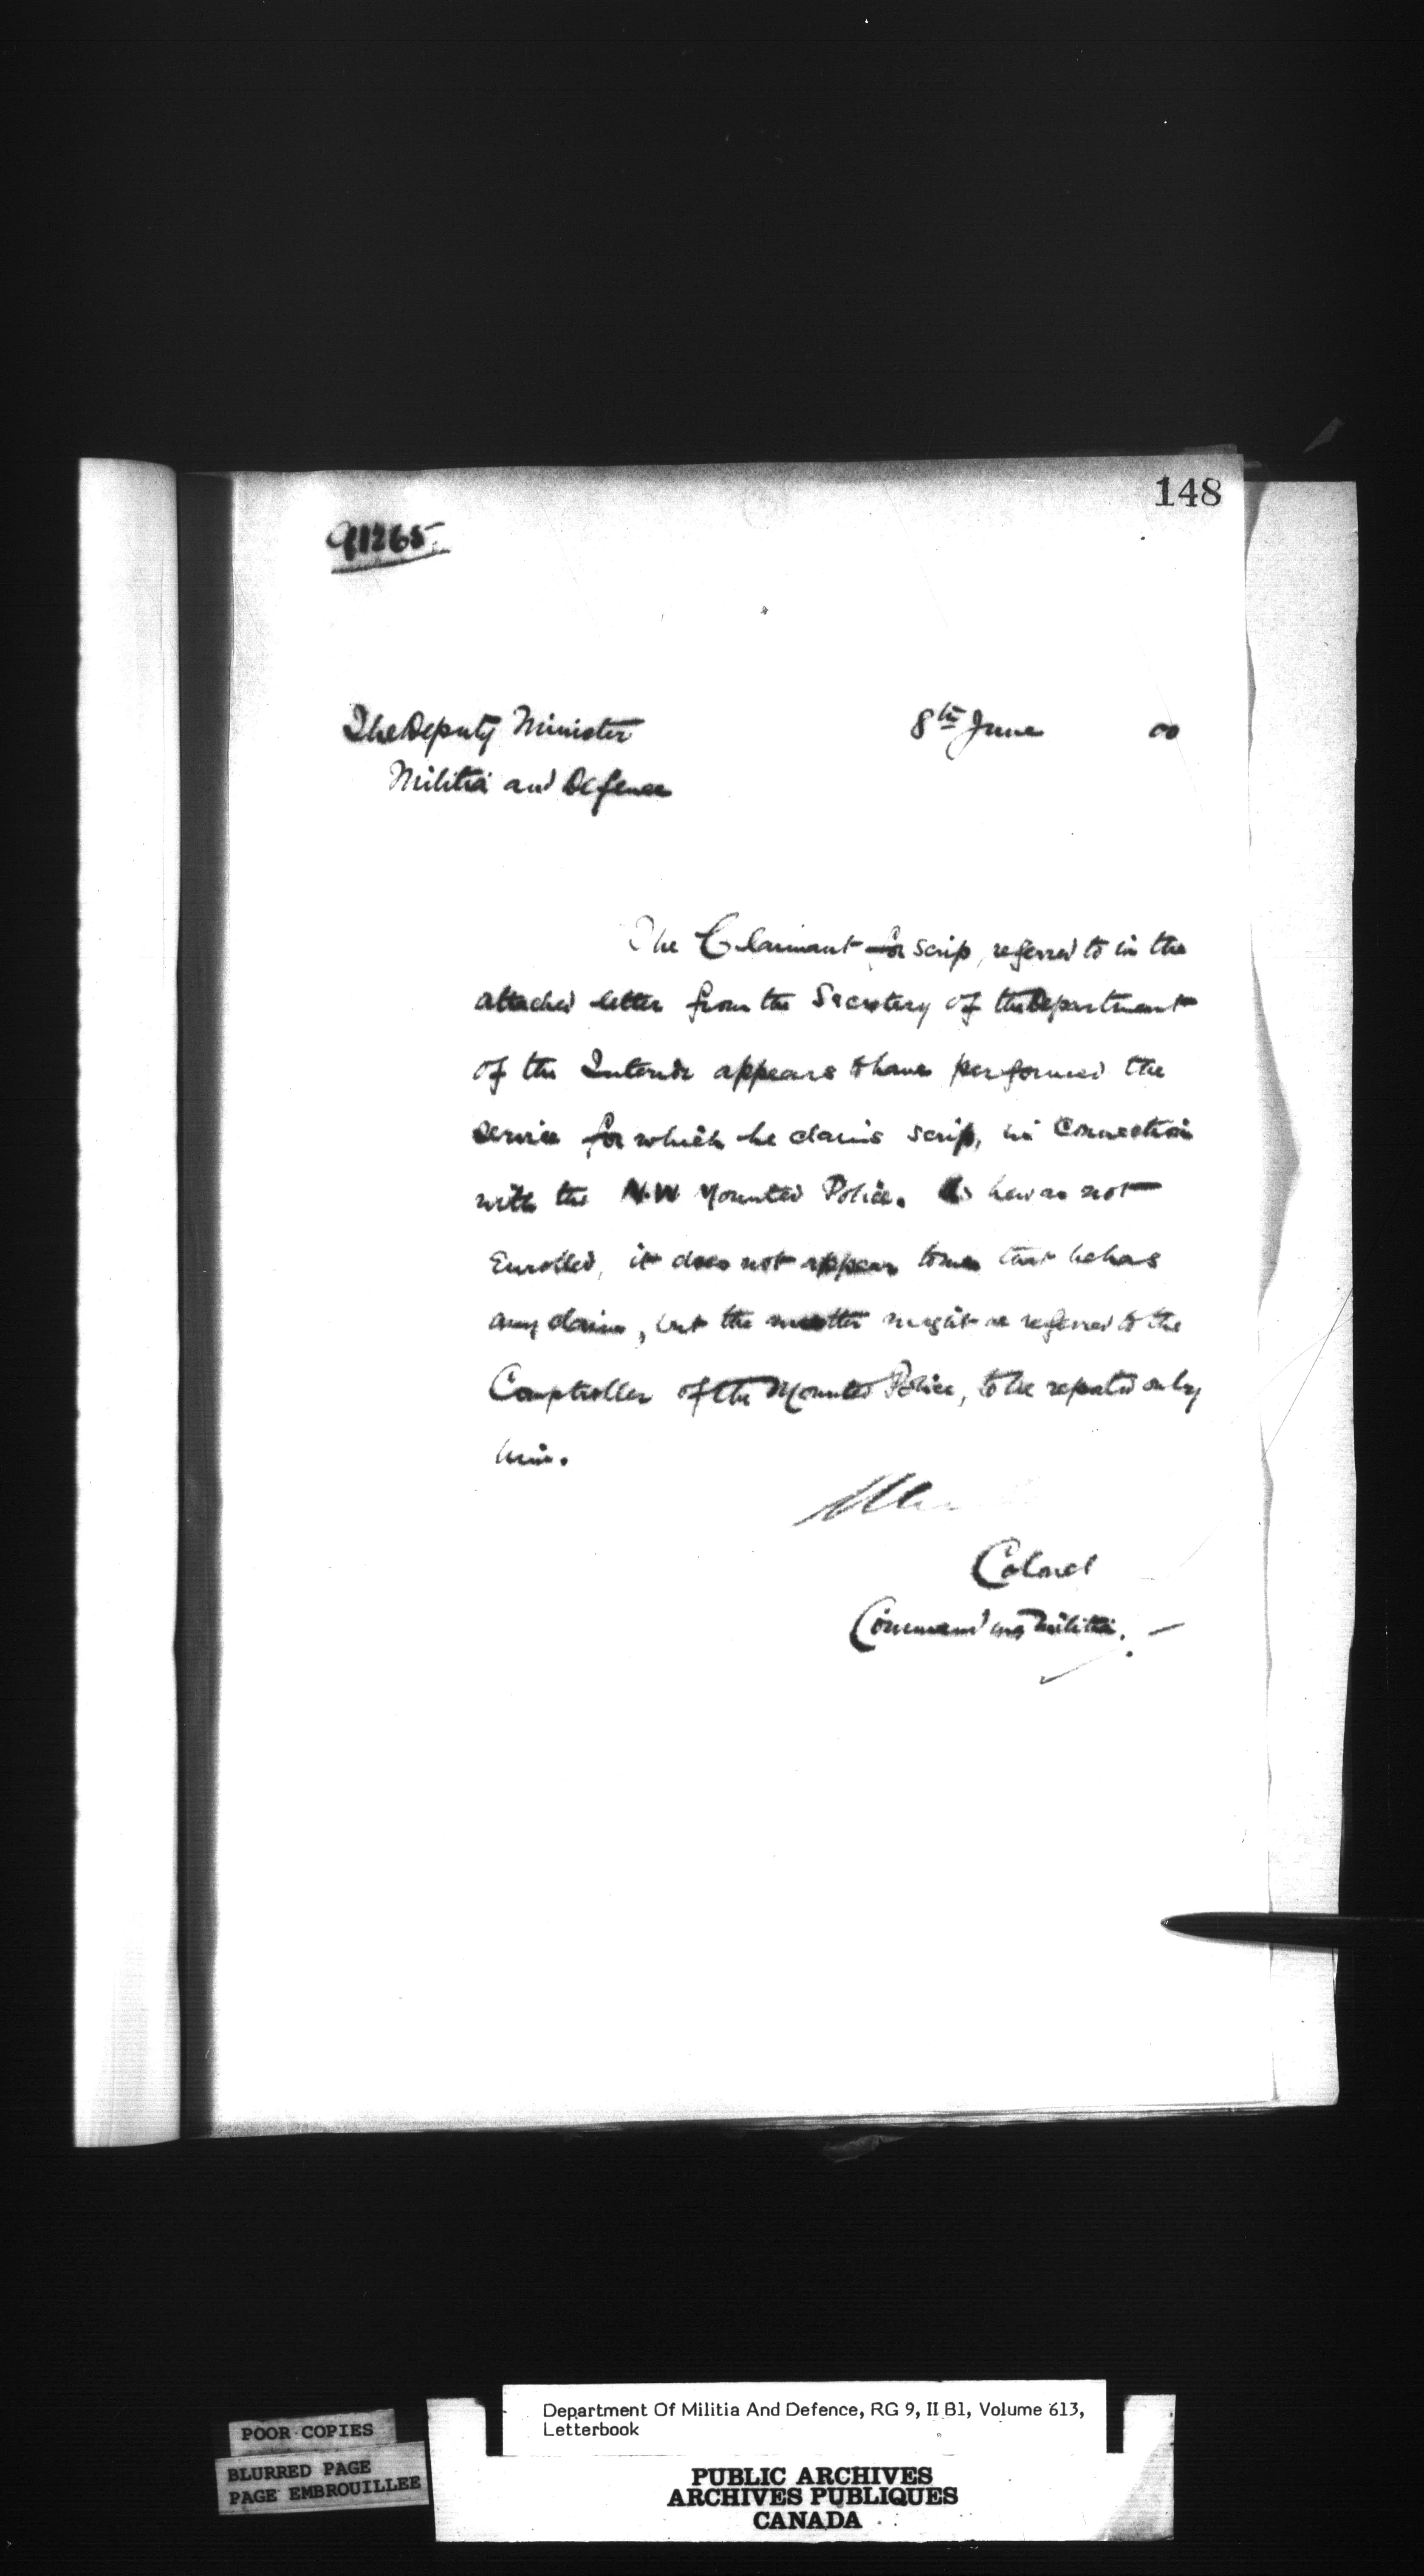 148
91265.
The Deputy Minister 8th June 00
Militia and Defence
The Claimant for scrip, referred to in the
attached letter from the Secretary of the Department
of the Interior appears to have performed the
service for which he claims scrip, in connection
with the N.W. Mounted Police. As he was not
Enrolled, it does not appear to me that he has
any claim, but the matter might be referred to the
Comptroller of the Mounted Police, to be reported on by
him.
Colonel
Commanding Militia.
POOR COPIES
BLURRED PAGE
PAGE EMBROUILLEE
Department Of Militia And Defence, RG 9, II B1, Volume 613,
Letterbook
PUBLIC ARCHIVES
ARCHIVES PUBLIQUES
CANADA